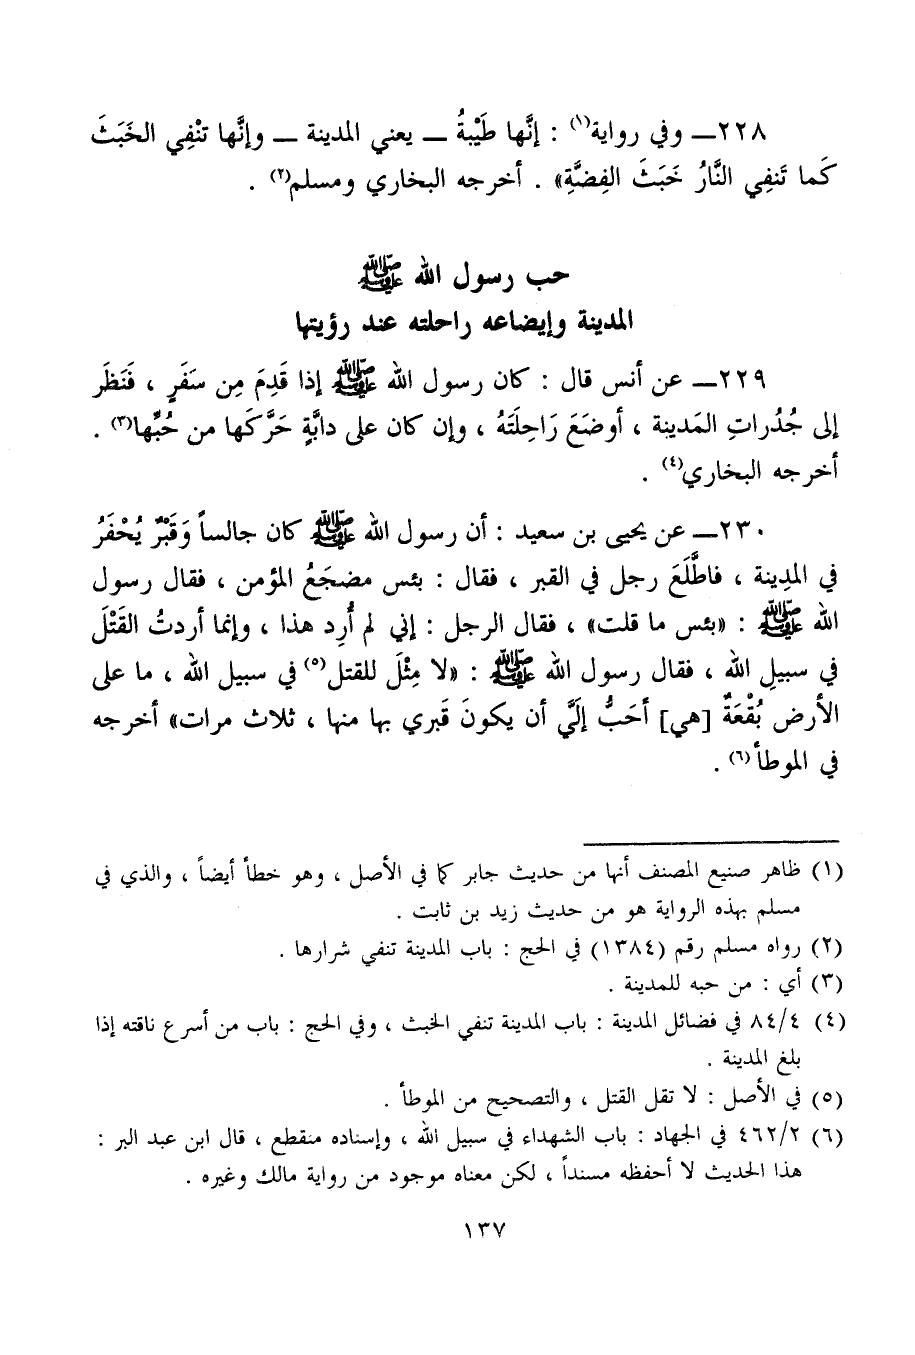 ٢٢٨ــ وفي رواية(١) : إنَّها طَيْبةُ ــ يعني المدينة ــ وإنَّها تنْفِي الخَبَثَ
كَما تَنفِي النَّارُ خَبَثَ الفِضَّةِ» . أخرجه البخاري ومسلم(٢) .
حب رسول الله ﷺ
المدينة وإيضاعه راحلته عند رؤيتها
٢٢٩ــ عن أنس قال : كان رسول الله ﷺ إذا قَدِمَ مِن سَفَرٍ ، فَنَظَر
إلى جُدُراتِ المَدينة ، أوضَعَ رَاحِلَتَهُ ، وإن كان على دابَّةٍ حَرَّكَها من حُبِّها(٣) .
أخرجه البخاري(٤) .
٢٣٠ــ عن يحيى بن سعيد : أن رسول الله ﷺ كان جالساً وَقَبْرٌ يُحْفَرُ
في المدِينة ، فاطَّلَعَ رجل في القبر ، فقال : بئس مضجَعُ المؤمن ، فقال رسول
الله ﷺ : «بئس ما قلت» ، فقال الرجل : إني لم أُرِد هذا ، وإنما أردتُ القَتْلَ
في سبيلِ الله ، فقال رسول الله ﷺ : «لا مِثْلَ للقتل(٥) في سبيل الله ، ما على
الأرض بُقْعَةٌ [هي] أحَبُّ إلَيَّ أن يكونَ قَبري بها منها ، ثلاث مرات» أخرجه
في الموطأ(٦) .
(١) ظاهر صنيع المصنف أنها من حديث جابر كما في الأصل ، وهو خطأ أيضاً ، والذي في
مسلم بهذه الرواية هو من حديث زيد بن ثابت .
(٢) رواه مسلم رقم (١٣٨٤) في الحج : باب المدينة تنفي شرارها .
(٣) أي : من حبه للمدينة .
(٤) ٨٤/٤ في فضائل المدينة : باب المدينة تنفي الخبث ، وفي الحج : باب من أسرع ناقته إذا
بلغ المدينة .
(٥) في الأصل : لا تقل القتل ، والتصحيح من الموطأ .
(٦) ٤٦٢/٢ في الجهاد : باب الشهداء في سبيل الله ، وإسناده منقطع ، قال ابن عبد البر :
هذا الحديث لا أحفظه مسنداً ، لكن معناه موجود من رواية مالك وغيره .
١٣٧